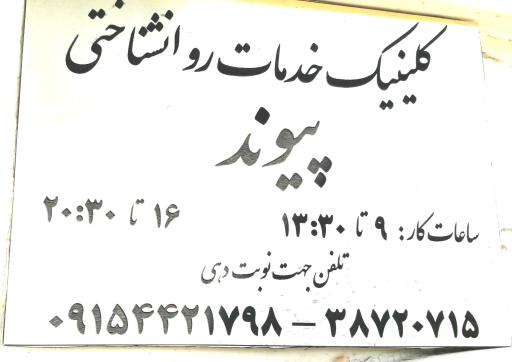 کلینیک خدمات روانشناختی
پیوند
ساعات کار: ۹ تا ۱۳:۳۰ ۱۶ تا ۲۰:۳۰
تلفن جهت نوبت دهی
۳۸۷۲۰۷۱۵ – ۰۹۱۵۴۴۲۱۷۹۸